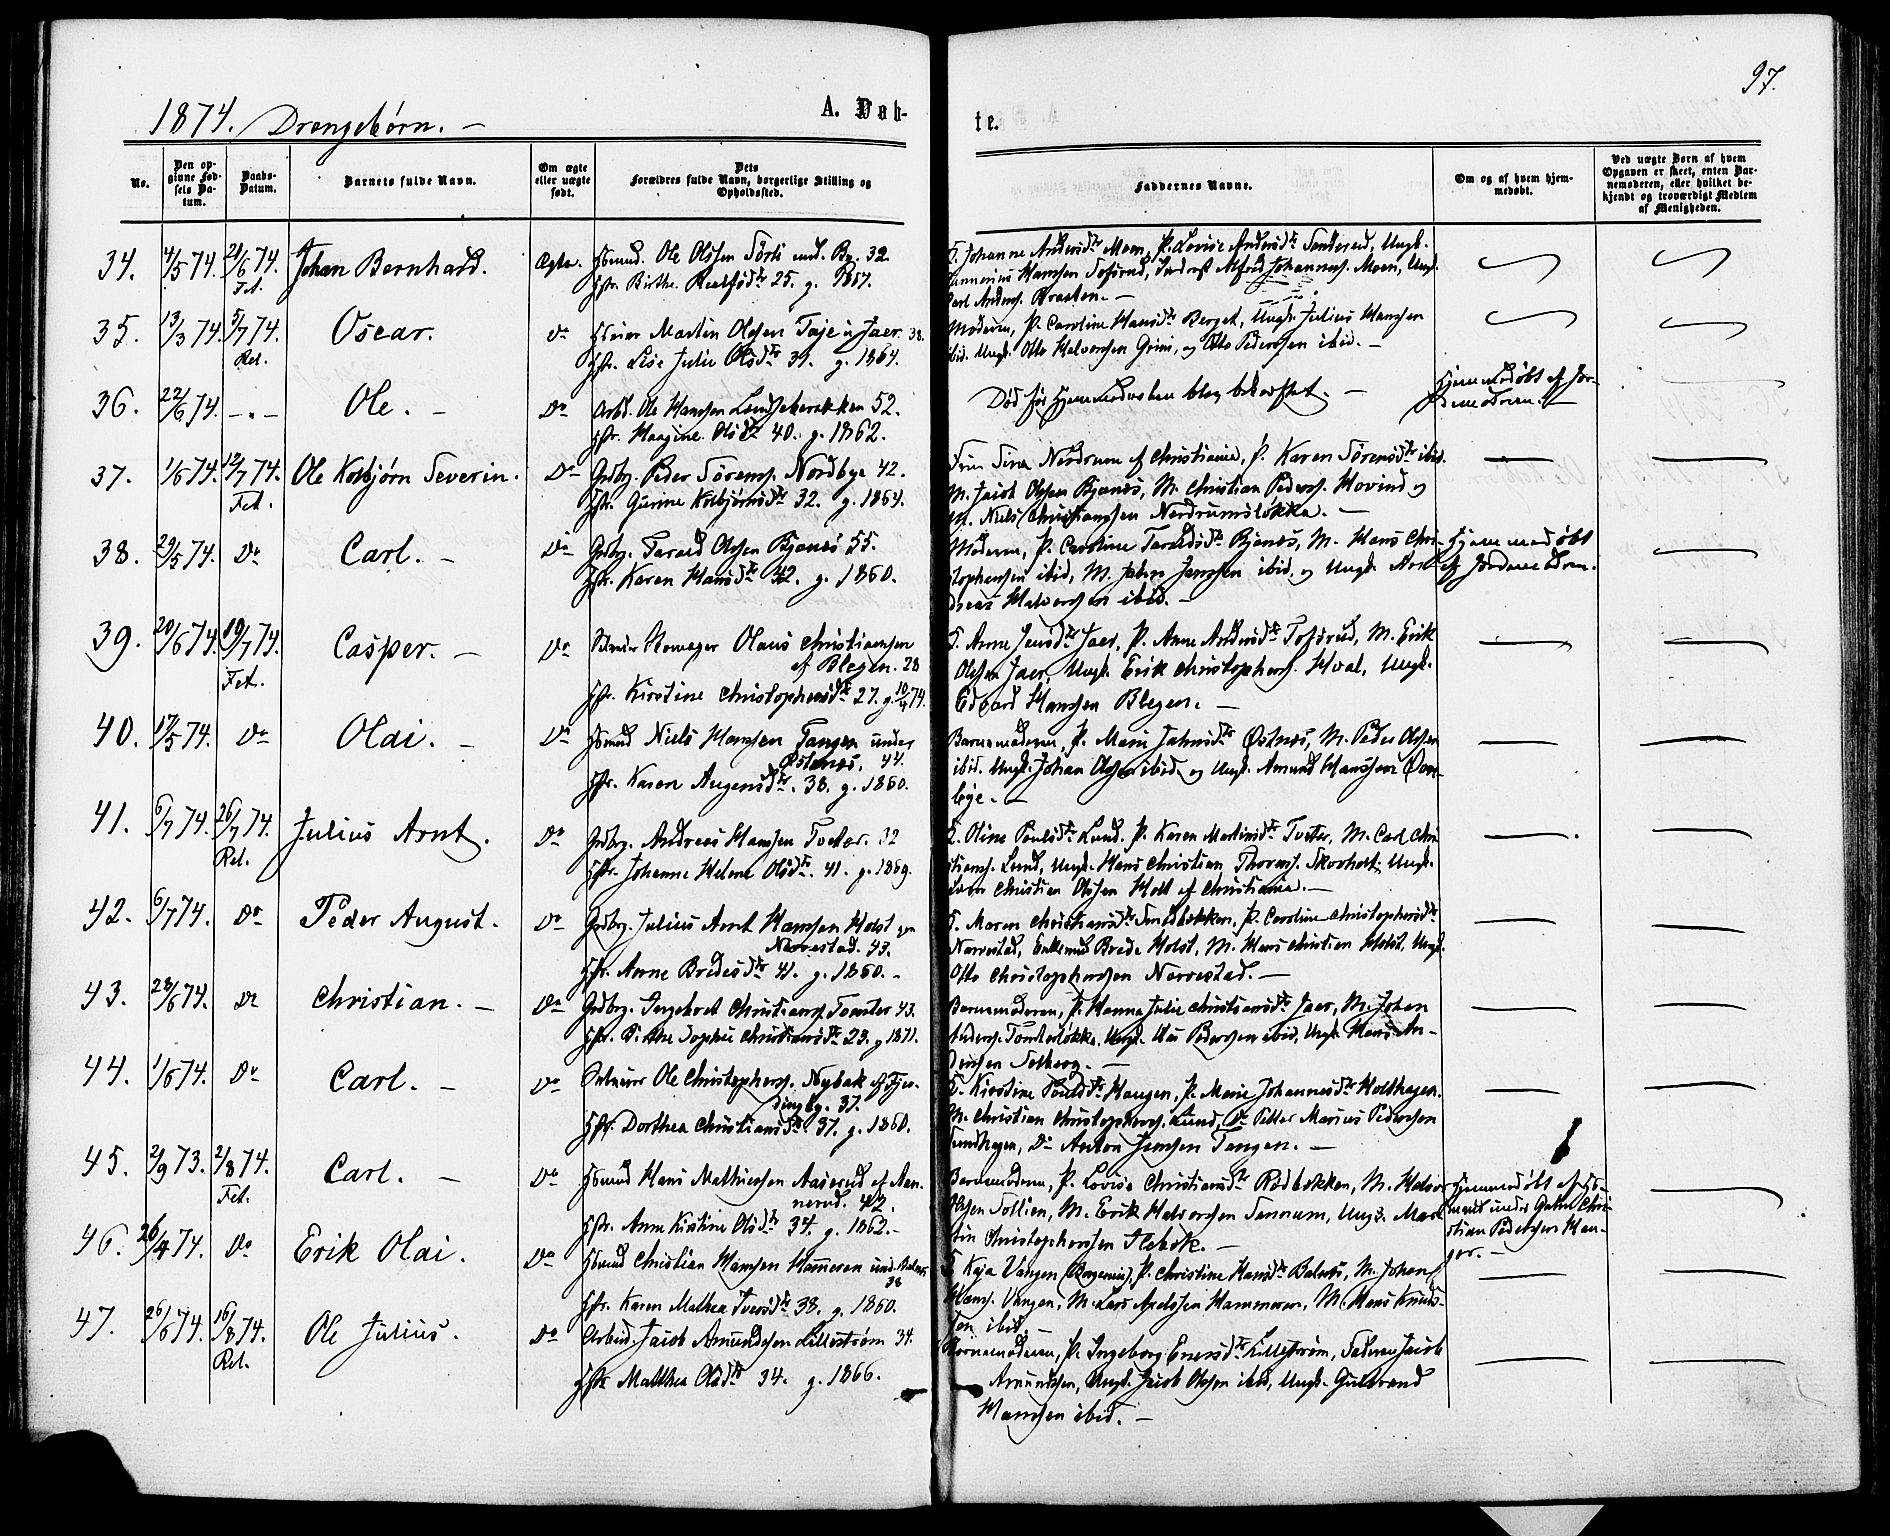 97.
1874. Drengebørn. —
A. Døb-
te.
No.
Den op-
givne Fød-
sels Da-
tum.
Daabs-
Datum.
Barnets fulde Navn.
Om ægte
eller uægte
født.
Dets
Forældres fulde Navn, borgerlige Stilling og
Opholdssted.
Faddernes Navne.
Om og af hvem hjem-
medøbt.
Ved uægte Børn af hvem
Opgaven er skeet, enten Bar-
nemoderen, eller hvilket be-
kjendt og troværdigt Medlem
af Menigheden.
34. 4/5 74. 21/6 74. Fet. Johan Bernhard. Ægte.
Hsmd. Ole Olsen
Hstr. Birthe 25. g.
Johanne Andersdtr Moen, P. Lovise Andersdtr
Hansen Tofsrud, Alfred Johanness. Moen, Ungk.
Carl Anders. Braaten. —
35. 13/3 74. 5/7 74. Rel. Oscar. Do
Martin Olsen Jaer. 38.
Hstr. Lise Julie Olsdtr 31. g. 1864.
Moderen, P. Caroline Hansdtr Berget, Ungk. Julius Hansen
ibid. Ungk. Otto Halvorsen og Otto Pedersen ibid. —
36. 22/6 74. — „ — Ole. — Do
Arbd. Ole Hansen 52.
Hstr. Olsdtr 40. g. 1862.
Død før Hjemmedaaben blev bekræftet. —
Hjemmedøbt af Jor-
demoderen. —
37. 1/6 74. 12/7 74. Fet. Ole Kolbjørn Severin. Do
Grdbrg. Peder Sørens. Nordbye 42.
Hstr. Gurine Kolbjørnsdtr 32. g. 1864.
Nordrum af Christiania, P. Karen Sørensdtr ibid.
M. Jacob Olsen Bjanes, M. Christian Peders. Hovind og
M. Niels Christiansen Nordrumsløkka. —
38. 29/5 74. Do Carl. — Do
Grdbrg. Olsen Bjanes 55.
Hstr. Karen Hansdtr 42. g. 1860.
Moderen, P. Caroline Bjanes, M. Hans Chri-
stophersen ibid, M. John Jensen ibid, og Ungk. An-
dreas Halvorsen ibid. —
Hjemmedøbt
af Jordemoderen.
39. 20/6 74. 19/7 74. Fet. Casper. — Do
Olaus Christiansen
af Blegen. 28
Hstr. Kirstine Christophersdtr 27. g. 10/4 74.
Anne Jensdtr Jaer, P. Anne Andersdtr Tofsrud, M. Erik
Olsen Jaer, Ungk. Erik Christophers. Hval, Ungk.
Edvard Hansen Blegen. —
40. 17/5 74. Do Olai. — Do
Hsmd Niels Hansen Tangen under
Østenes. 44.
Hstr. Karen Augensdtr. 38. g. 1860.
Barnemoderen, P. Marie Johnsdtr Østnes, M. Peder Olsen
ibid. Ungk. Johan Olsen ibid. og Ungk. Amund Hansen Øver-
bye. —
41. 6/7 74. 26/7 74. Rel. Julius Arnt. Do
Grdbrg. Andreas Hansen Tveter. 32
Hstr. Johanne Helene Olsdtr. 41. g. 1869.
Oline Poulsdtr Lund. P. Karen Martinsdtr Tveter, M. Carl Chri-
stians. Lund, Ungk. Hans Christian Thorvs. Skovholt, Ungk.
Christian Olsen Holt af Christiania. —
42. 6/7 74. Do Peder August. Do
Grdbrg. Julius Arnt Hansen Holst
Narvestad. 43.
Hstr. Anne Bredesdtr 41. g. 1860. —
Maren Christiansdtr P. Caroline Christophersdtr
Narvestad, Enkemd Brede Holst, M. Hans Christian Holst, Ungk.
Otto Christophersen Narvestad. —
43. 28/6 74. Do Christian. — Do
Grdbrg. Ingebret Christians. Tomter 43.
Hstr. Birthe Sophie Christiansdtr 23. g. 1871.
Barnemoderen, P. Hanna Julie Christiansdtr Jaer, M. Johan
Anders. Tomterløkka, Ungk. Pedersen ibid, Ungk. Hans An-
dersen Solberg. —
44. 1/6 74. Do Carl. — Do
Ole Christophers. Nybak af Fjer-
dingby. 37.
Hstr. Dorthea Christiansdtr. 37. g. 1860.
Kirstine Poulsdtr Haugen, P. Marie Johannesdtr Holthagen.
M. Christian Christophers. Lund, Do Petter Marius Pedersen
Lundhagen, Do Anton Jensen Tangen. —
45. 2/9 73. 2/8 74. Fet. Carl. — Do
Hsmd Hans Mathiesen Aaserud af Aan-
nerud. 42.
Hstr. Anne Kirstine Olsdtr 34. g. 1862. —
Barnemoderen, P. Lovise Christiansdtr Rødbekken, M. Halvor
Olsen M. Erik Halvorsen Tannum, Ungk. Mar-
tin Christophersen —
Hjemmedøbt af Hs-
mand under Chri-
stian Pedersen Han-
ger. —
46. 26/4 74. Do Erik Olai. Do
Hsmd Christian Hansen Hameren und. Balnes
38
Hstr. Karen Mathea Iversdtr 38. g. 1860.
Kaja Vangen P. Christine Hansdtr Balnes, M. Johan
Hans. Vangen, M. Lars Axelsen Hammeren, M. Hans Knud-
sen ibid. —
47. 26/6 74. 16/8 74. Rel. Ole Julius. Do
Arbeid. Jacob Amundsen Lillestrøm 34.
Hstr. Mathea Olsdtr 34. g. 1866.
Barnemoderen, P. Ingeborg Enersdtr Lillestrøm, Faderen Jacob
Amundsen, Ungk. Jacob Olsen ibid, Ungk. Gulbrand
Hansen ibid. —